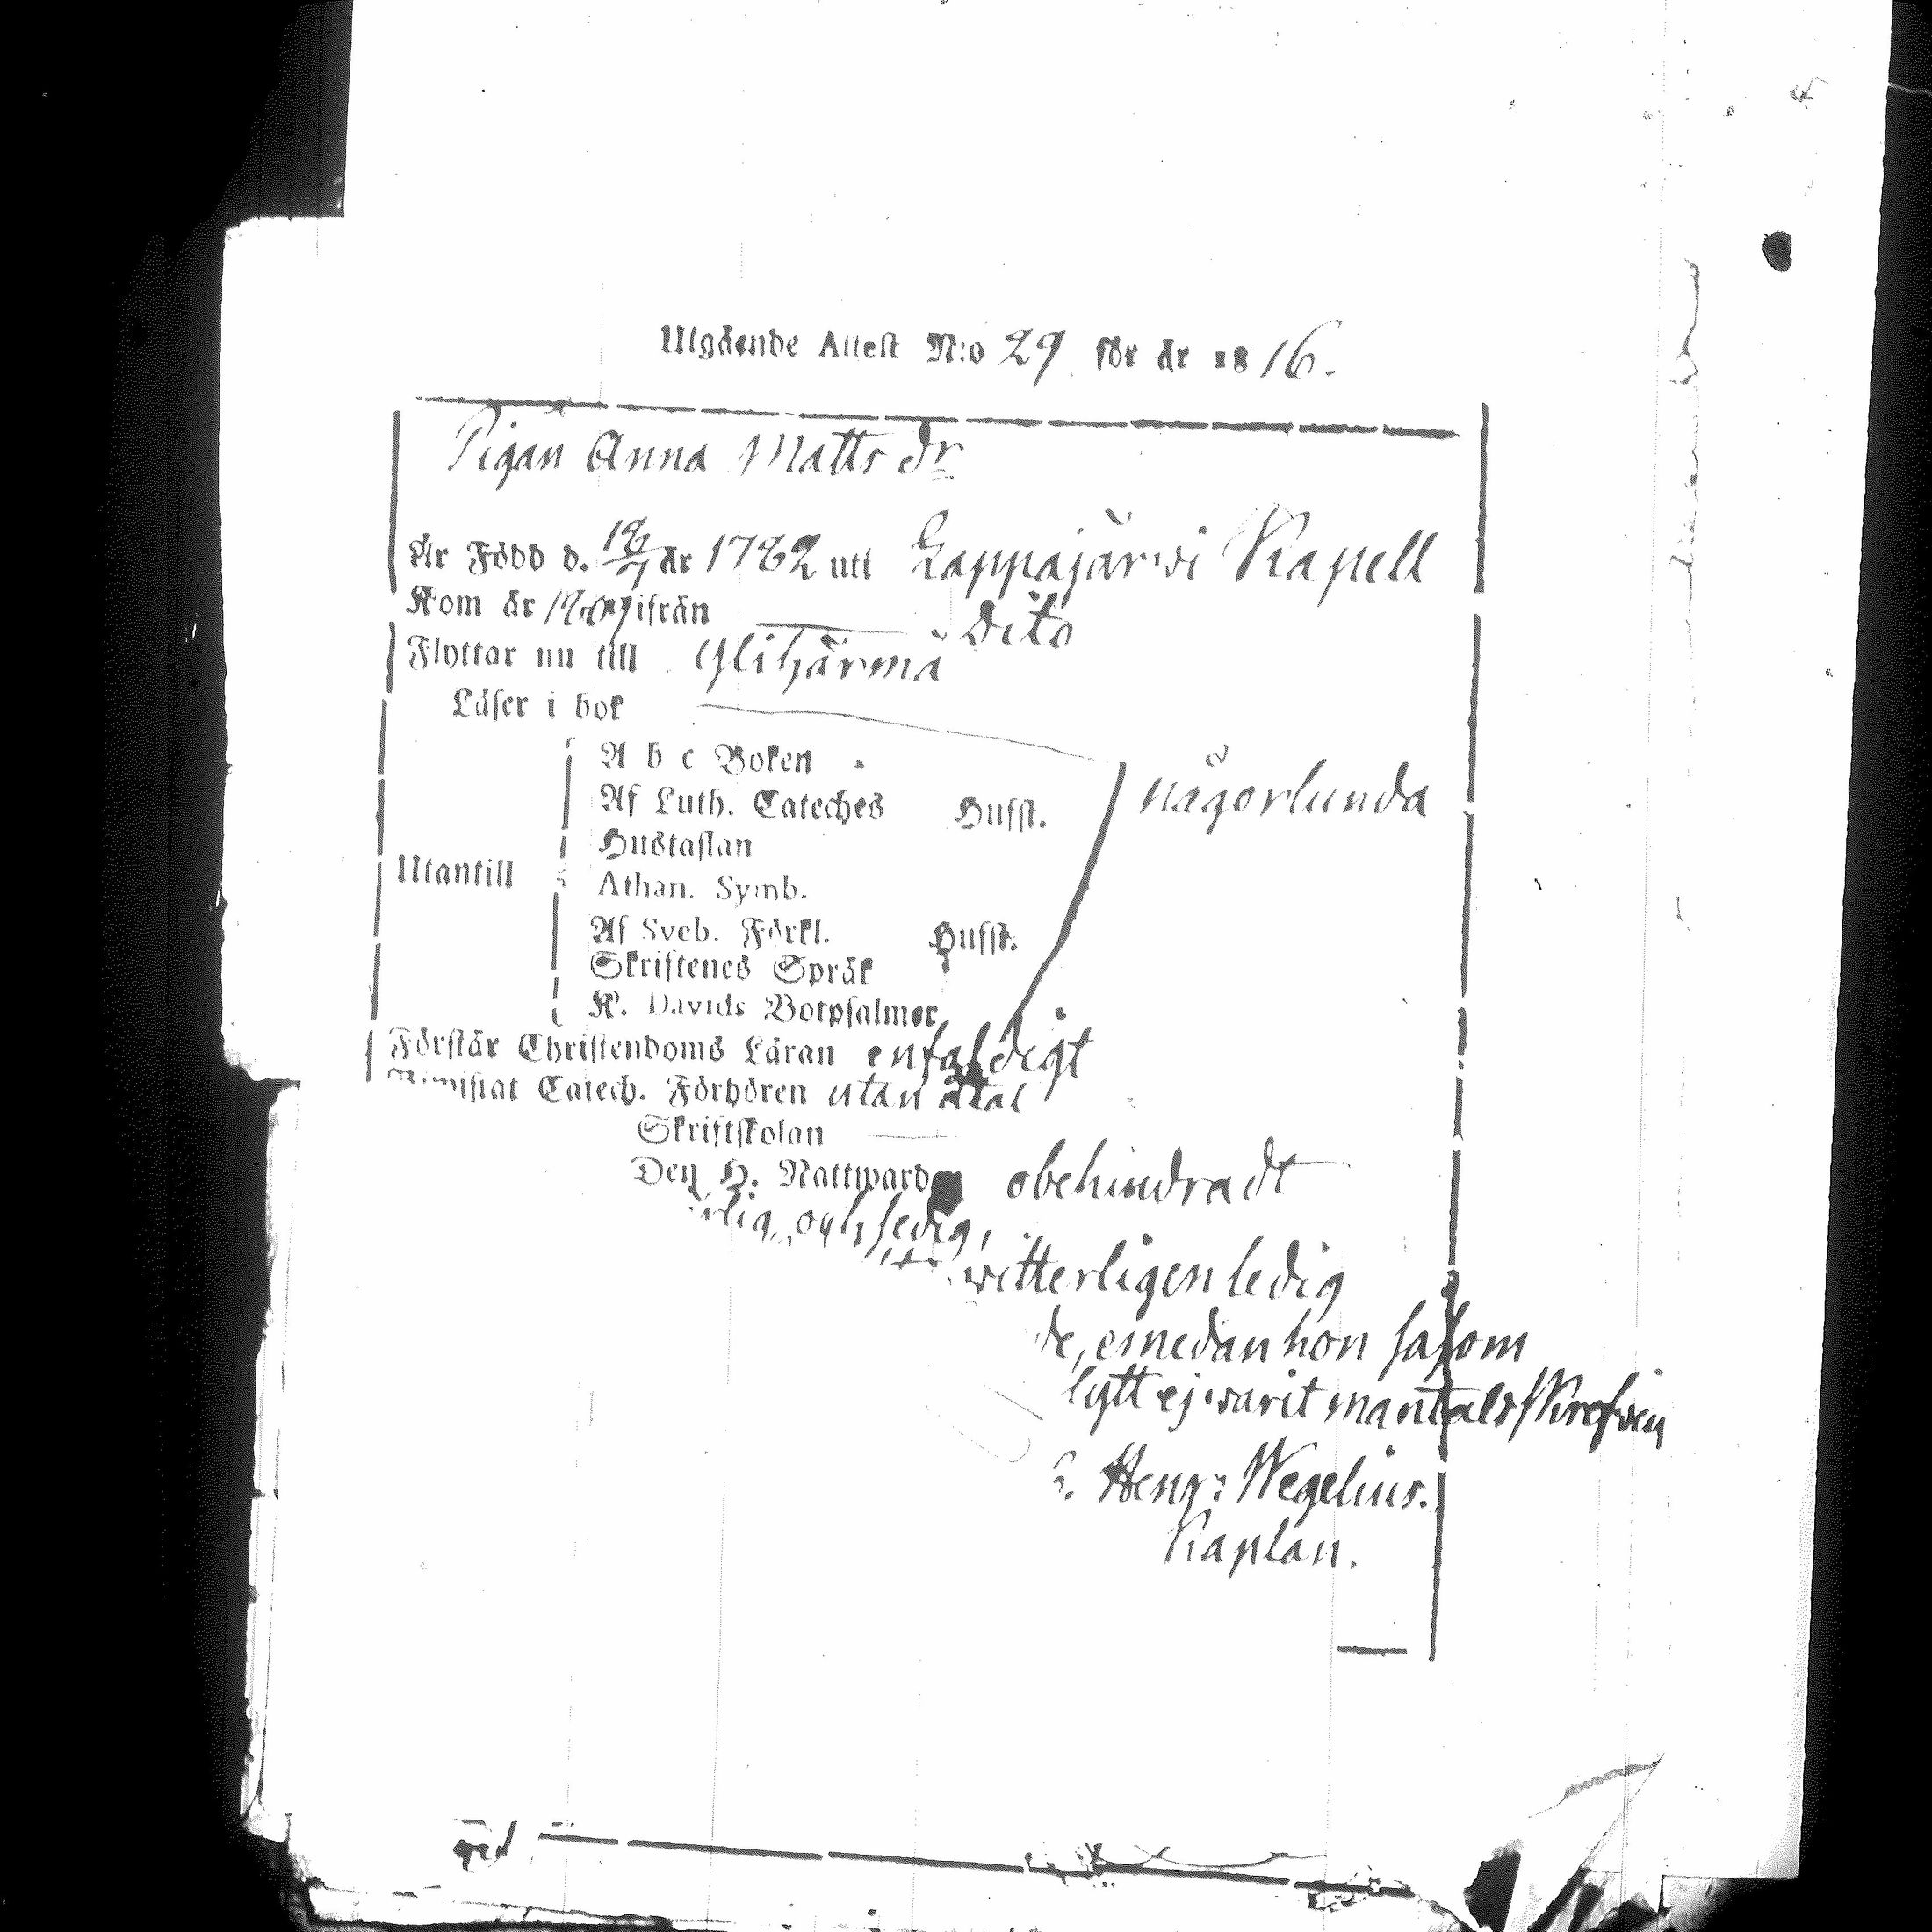 Utgående Attest N:o 29. för år 1816.
Pigan Anna Matts dr
Är Född d. 18/7 år 1782 utı Lappajärwi Kapell
Kom år 1809 ifrån dito
Flyttar nu till Ylihärmä
Läser i bok
A b c Boken
någorlunda
Af Luth. Cateches Hufst.
Hustaflan
Utantill
Athan. Symb.
Af Sveb. Förkl. Hufst.
Skriftenes Språk
K. Davids Botpsalmer
Förstår Christendoms Läran enfaldigt
Catech. Förhören utan åtal
Skriftskolan
Den H. Nattward obehindradt
och ledig,
witterligen ledig
emedan hon såsom
ej warit mantalsskrefwen
Henr: Wegelius.
Kaplan.